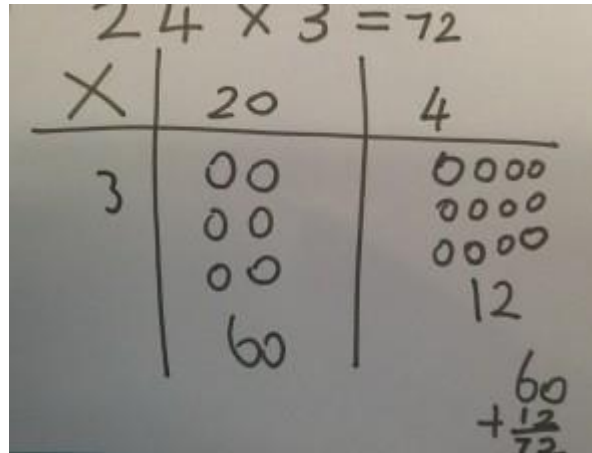 24 × 3 = 72
× 20 4
3 00 0000
00 0000
00 0000
60 12
60
+ 12
72